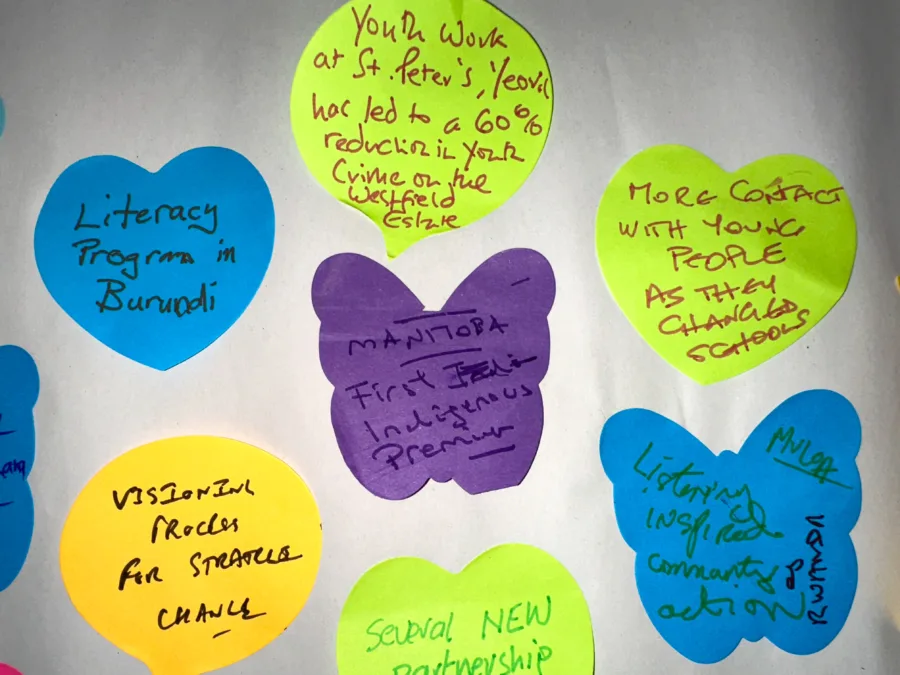 Youth Work
at St. Peter's, Yeovil
has led to a 60%
reduction in youth
Crime on the
Westfield
Estate
Literacy
Program in
Burundi
MORE CONTACT
WITH YOUNG
PEOPLE
AS THEY
CHANGED
SCHOOLS
MANITOBA
First
Indigenous
Premier
VISIONING
PROCESS
FOR STRATEGIC
CHANGE
Listening
INSPIRED
community
action
RWANDA
Several NEW
Partnership